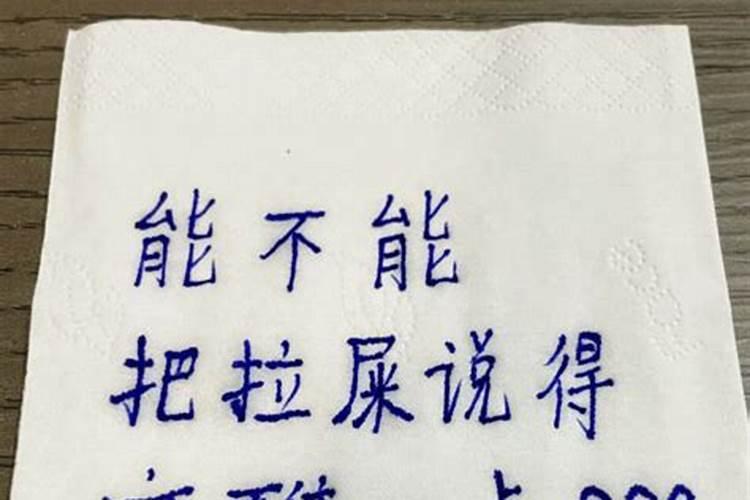 能不能
把拉屎说得